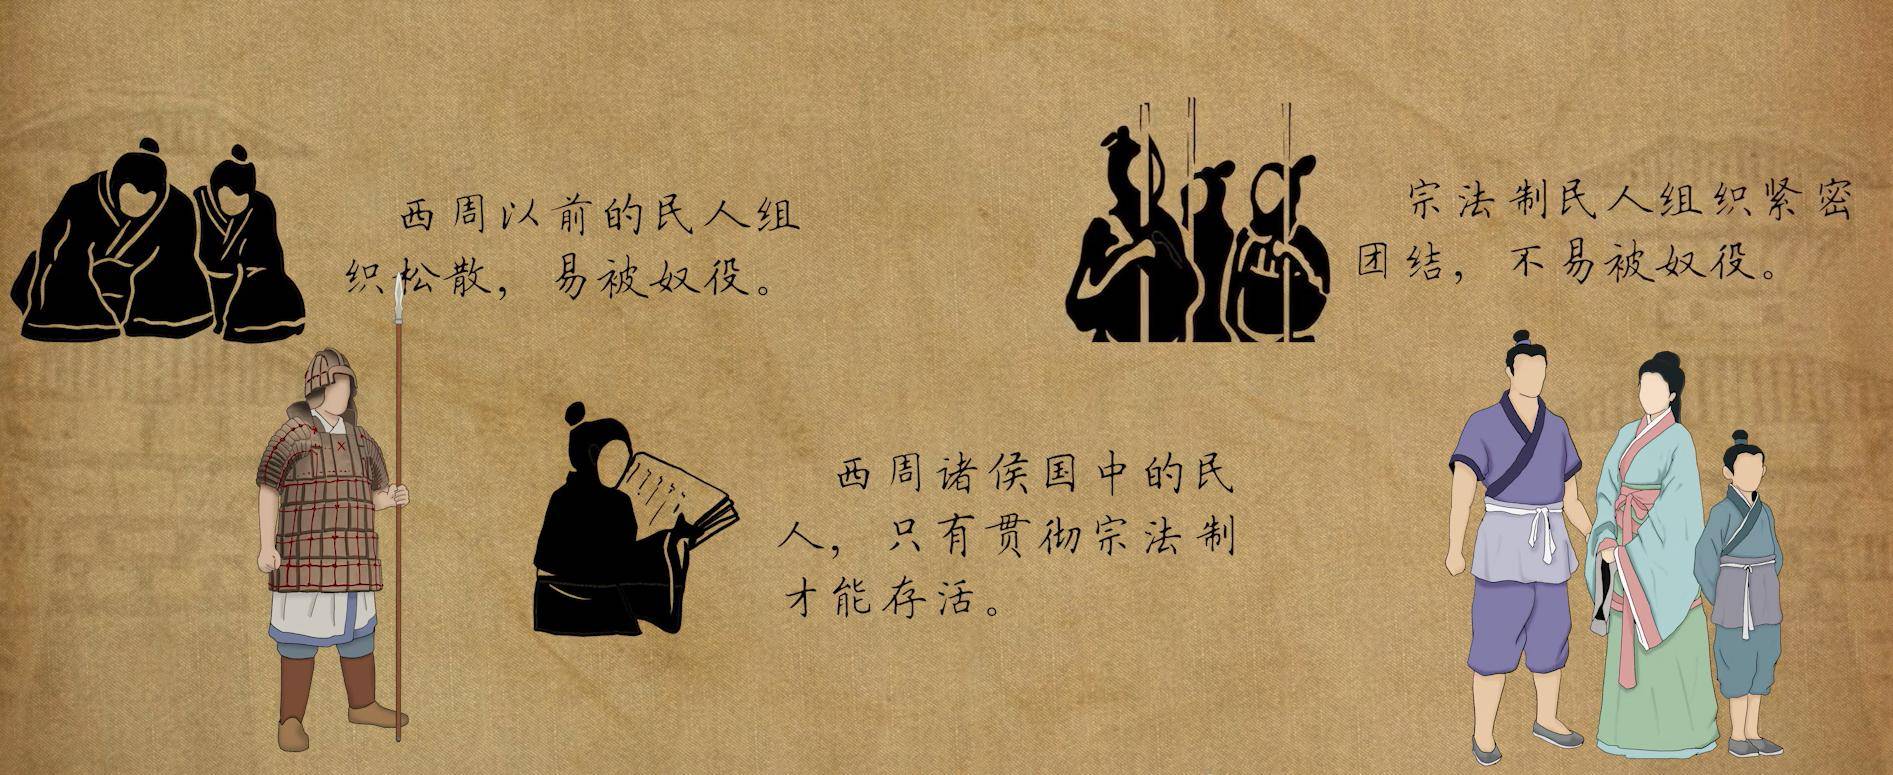 西周以前的民人组
织松散，易被奴役。
宗法制民人组织紧密
团结，不易被奴役。
西周诸侯国中的民
人，只有贯彻宗法制
才能存活。